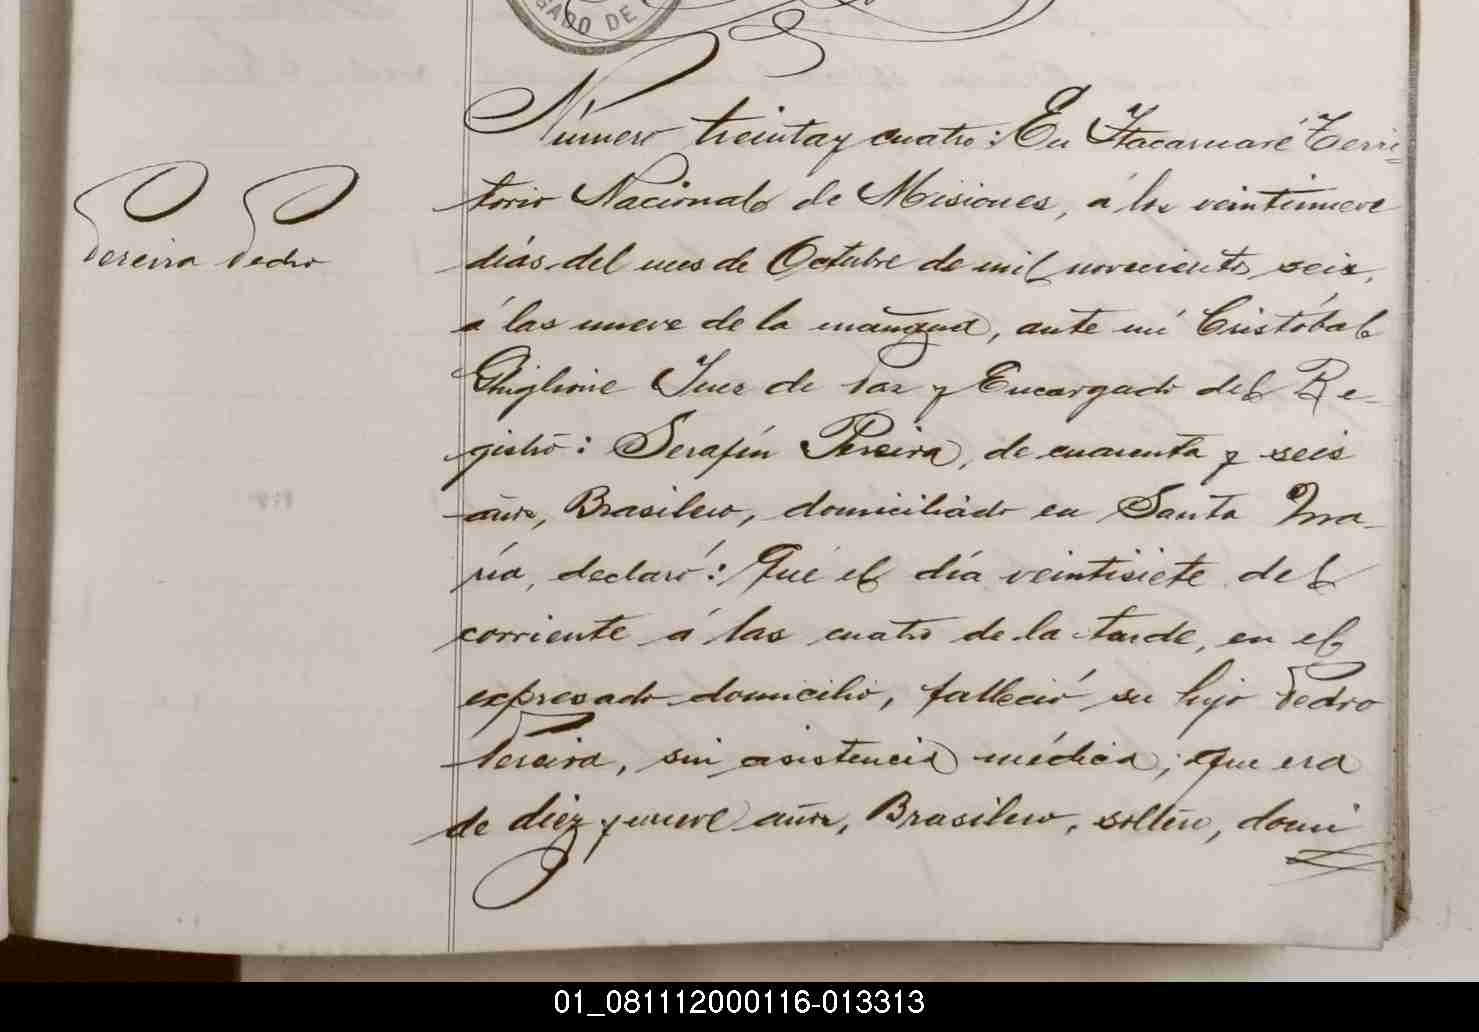 GADO DE
Número treinta y cuatro: En Itacaruaré Terri-
torio Nacional de Misiones, á los veintinueve
Pereira Pedro
días del mes de Octubre de mil novecientos seis,
á las nueve de la mañana, ante mí Cristóbal
Ghiglione Juez de Paz y Encargado del Re-
gistro: Serafín Pereira, de cuarenta y seis
años, Brasilero, domiciliado en Santa Ma-
ría, declaró: Que el día veintisiete del
corriente á las cuatro de la tarde, en el
expresado domicilio, falleció su hijo Pedro
Pereira, sin asistencia médica; que era
de diez y nueve años, Brasilero, soltero, domi
01_081112000116-013313